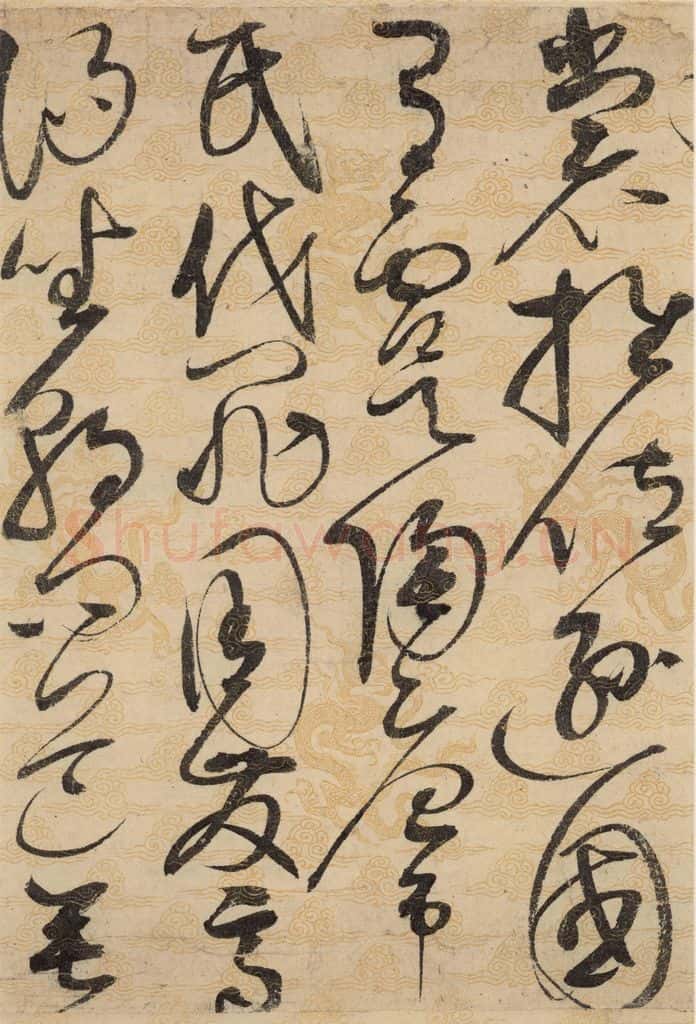 裳推位遜國
有虞陶唐弔
民伐罪周發商
湯坐朝問道垂
Shufawang.CN